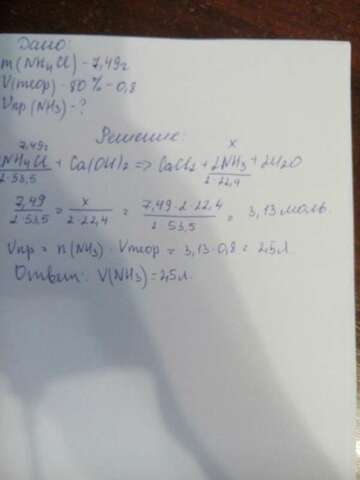 Дано:
m(NH4Cl) - 7,49г
V(теор) - 80% - 0,8
Vпр(NH3) - ?
Решение:
7,49г x
2NH4Cl + Ca(OH)2 => CaCl2 + 2NH3 + 2H2O
2·53,5 2·22,4
7,49 / 2·53,5 = x / 2·22,4 = 7,49·2·22,4 / 2·53,5 = 3,13 моль.
Vпр = n(NH3) · Vтеор = 3,13·0,8 = 2,5л.
Ответ: V(NH3) = 2,5л.